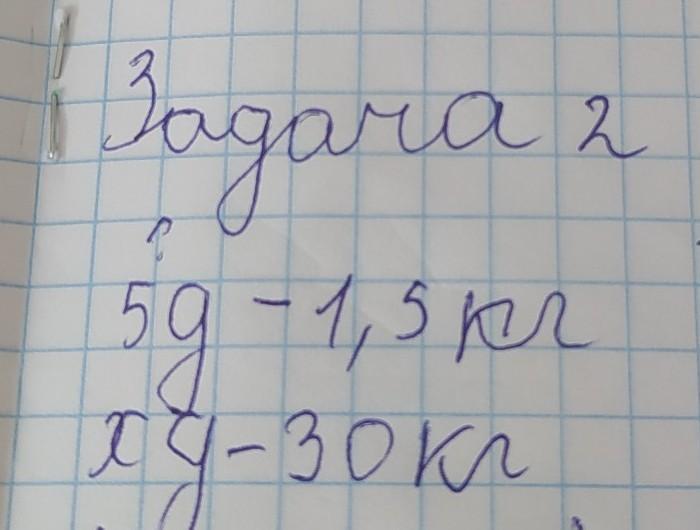 Задача 2
?
5д - 1,5 кг
х д - 30 кг